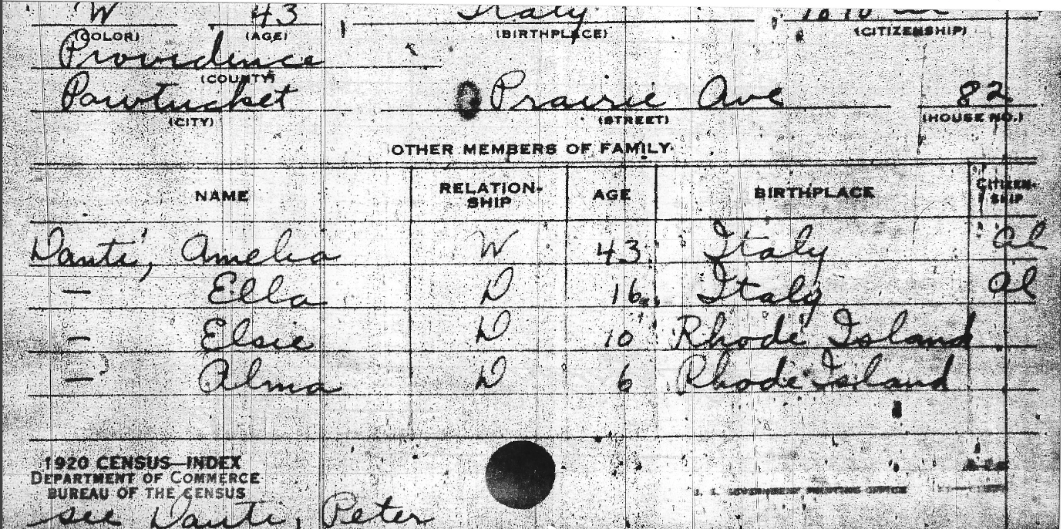 W 43 Italy
(COLOR) (AGE) (BIRTHPLACE) (CITIZENSHIP)
Providence
(COUNTY)
Pawtucket Prairie Ave 82
(CITY) (STREET) (HOUSE NO.)
OTHER MEMBERS OF FAMILY
NAME RELATION-SHIP AGE BIRTHPLACE CITIZEN-SHIP
Danti, Amelia W 43 Italy Al
— Ella D 16 Italy Al
— Elsie D 10 Rhode Island
— Alma D 6 Rhode Island
1920 CENSUS—INDEX
DEPARTMENT OF COMMERCE
BUREAU OF THE CENSUS
U. S. GOVERNMENT PRINTING OFFICE
see Danti, Peter